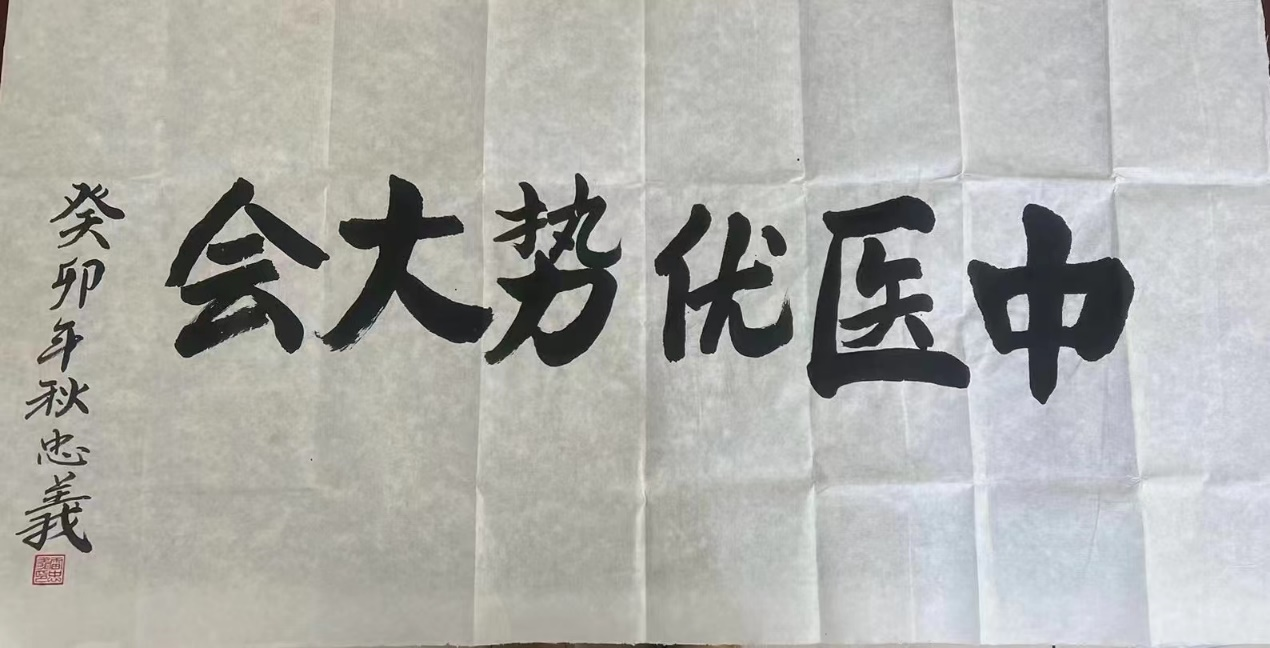 中医优势大会
癸卯年秋忠義